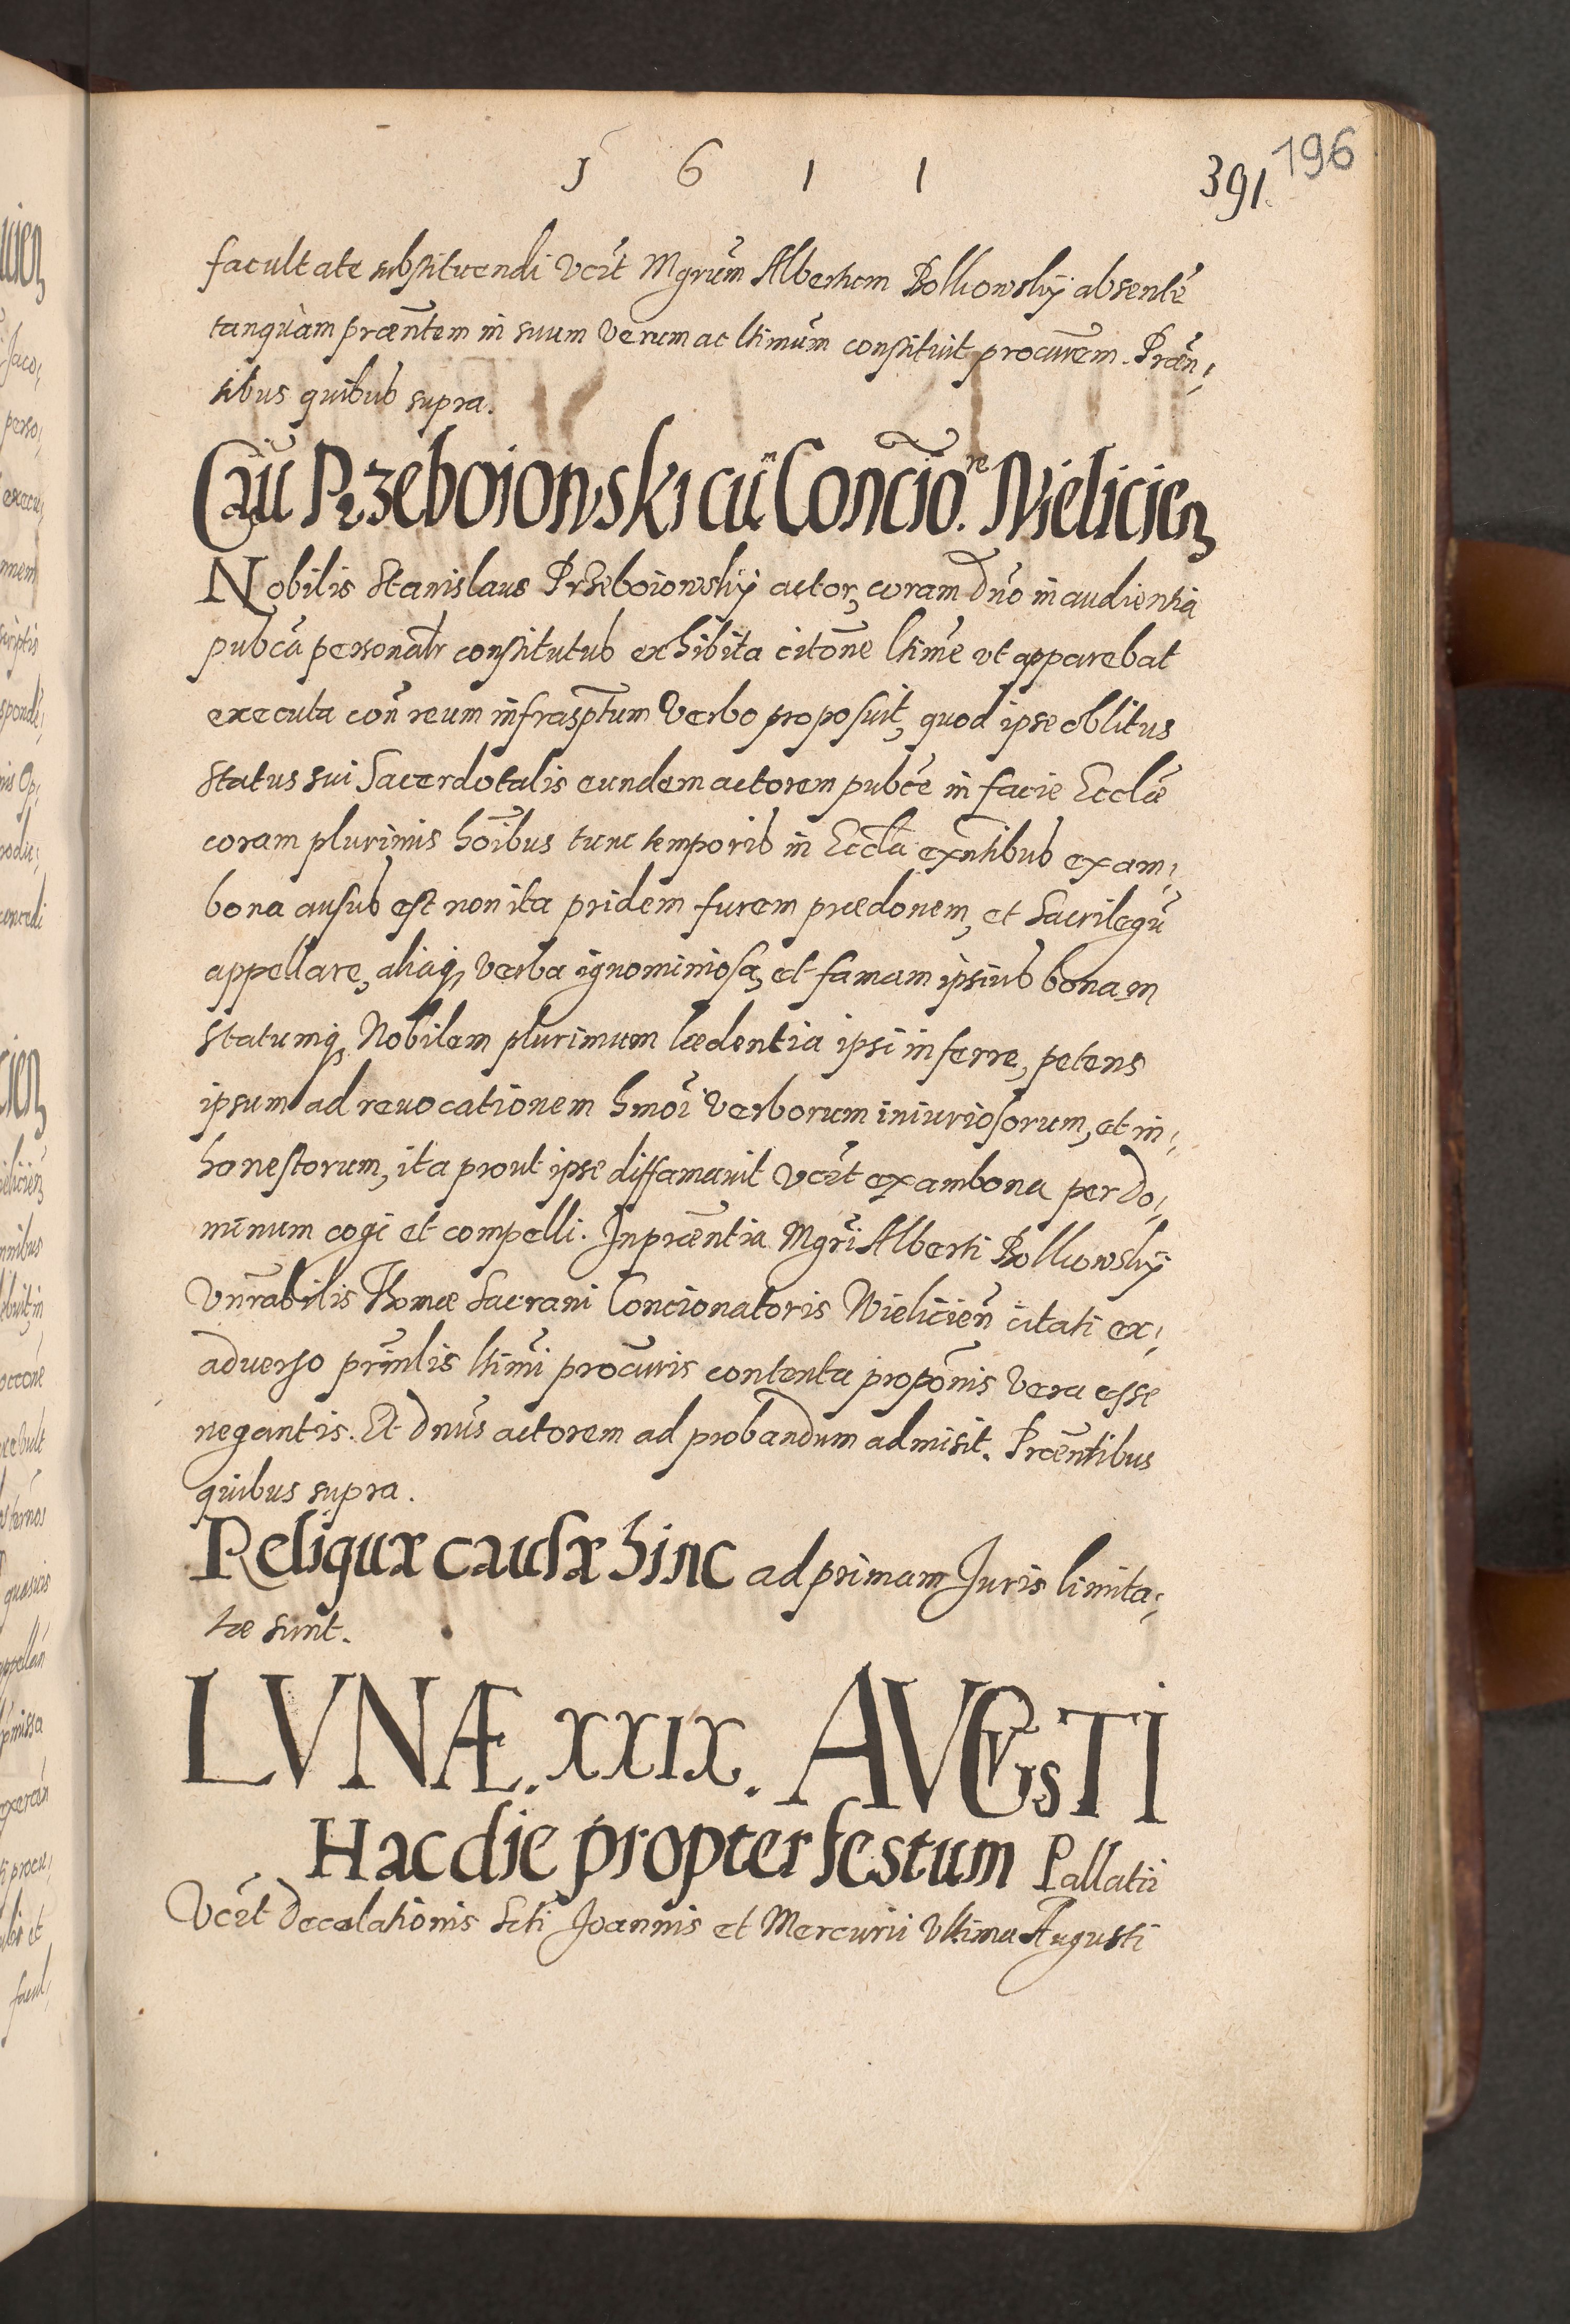 1 6 1 1
391. 196
facultate substituendi vc̃rt Mgrũm Albertum Bolkowskÿ absentẽ
tanquàm præñtem in suum verum ac ltimũm constituit procurẽm. Præñ;
tibus quibus supra.
Cãu Przeboiowski cũ Concĩo.re Wieliciẽ
Nobilis Stanislaus Przeboiowskÿ actor, coram Dño in audientia
pubcã personalr̃ constitutus exhibita citõne ltimẽ vt apparebat
executa coñ reum infrasp̃tum verbo proposuit, quod ipse oblitus
status sui Sacerdotalis eundem actorem pubcẽ in facie Ecclæ̃
coram plurimis hõibus tunc temporis in Ecclã exñtibus ex am;
bona ausus est non ita pridem furem prædonem, et Sacrilegũ
appellare, aliaq, verba ignominiosa, et famam ipsius bonam
statumq, Nobilem plurimum lædentia ipsi inferre, petens
ipsum ad reuocationem hmõi verborum iniuriosorum, et in;
honestorum, ita prout ipse diffamauit vc̃rt ex ambona per do;
minum cogi et compelli. In præñtia Mgrĩ Alberti Bolkowskÿ
Vñrabilis Thomæ Sacrani Concionatoris Wielicieñ citati ex;
aduerso prĩnlis ltimĩ procũris contenta propõnis vera esse
negantis. Et Dnũs actorem ad probandum admisit. Præñtibus
quibus supra.
Reliquæ causæ hinc ad primam Juris limita;
tæ sunt.
LVNÆ. XXIX. AVGVSTI
Hac die propter festum Pallatii
vc̃rt Decolationis Sctĩ Joannis et Mercurii vltima Augusti